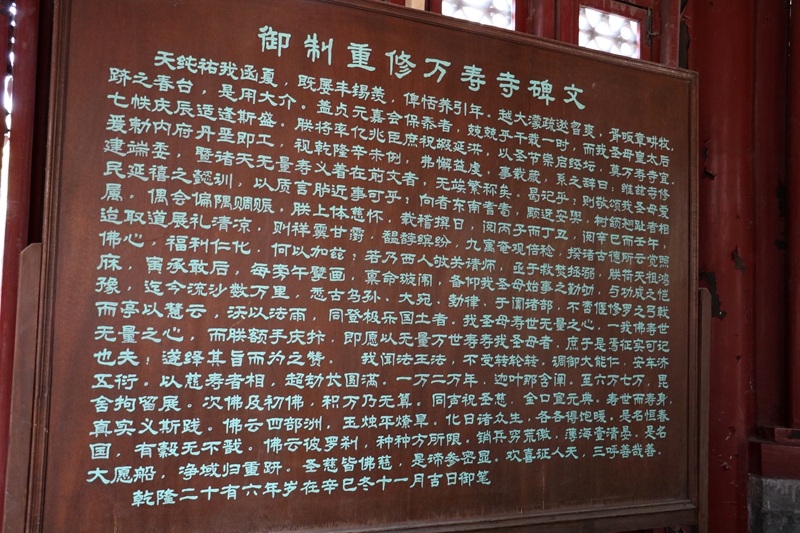 御制重修万寿寺碑文
天纯祐我函夏，既屡丰锡羡，俾恬养引年。越大濛疏逖官爽，胥畈章畊牧。
跡之春台，是用大介。盖贞元嘉会保泰者，兢兢乎干载一时，而我圣母皇太后
七帙庆辰适逢斯盛。朕将率亿兆臣庶祝嘏延洪，以圣节崇启经坛，莫万寿寺宜。
爰勅内府丹垩即工，视乾隆辛未例，弗懈益虔，事载蒇，系之辞曰：维兹寺修
建端委，暨诸天无量寿义者在前文者，无端繁称矣。曷记乎；则敬颂我圣母爱
民延禧之懿训，以质言胪近事可乎；向者东南耆耇，愿远安舆，村鹤迾趾者相
属，偶会偏隅赒赈，朕上体慈怀，载稽撰日，阅丙子而丁丑，阅辛巳而壬午，
迨取道展礼清凉，则祥霙甘霤，韫馞缤纷，九寓眘观倍稔，揆诸古德所云觉照
佛心，福利仁化，何以加兹；若乃西人敀关请师，亟于救焚拯溺，朕荷天祖鸿
庥，寅承敢后，每旁午擘画，禀命璇闱，备仰我圣母始事之勤劬，与功成之恺
豫，迄今流沙数万里，悉古乌孙、大宛、勃律、于阗诸部，不啻倕修罗之弓戟
而亭以慧云，沃以法雨，同登极乐国土者。我圣母寿世无量之心，一我佛寿世
无量之心，而朕额手庆抃，即愿以无量万世寿寿我圣母者，庶于是焉征实可记
也夫；遂绎其旨而为之赞。我闻法王法，不受转轮转。调御大能仁，安车济
五衍。以慈寿者相，超劫长圆满。一万二万年，迦叶那含阐。至六万七万，毘
舍拘留展。次佛及初佛，积万乃无算。同声祝圣慈，金口宣元典。寿世而寿身，
真实义斯践。佛云四部洲，玉烛平燎旱。化日诸众生，各各得饱暖。是名恒春
国，有毂无不戬。佛云彼罗刹，种种方所限。销兵穷荒徼，薄海壹清晏。是名
大愿船，净域归重跰。圣慈皆佛慈，是谛参密显。欢喜征人天，三呼善哉善。
乾隆二十有六年岁在辛巳冬十一月吉日御笔